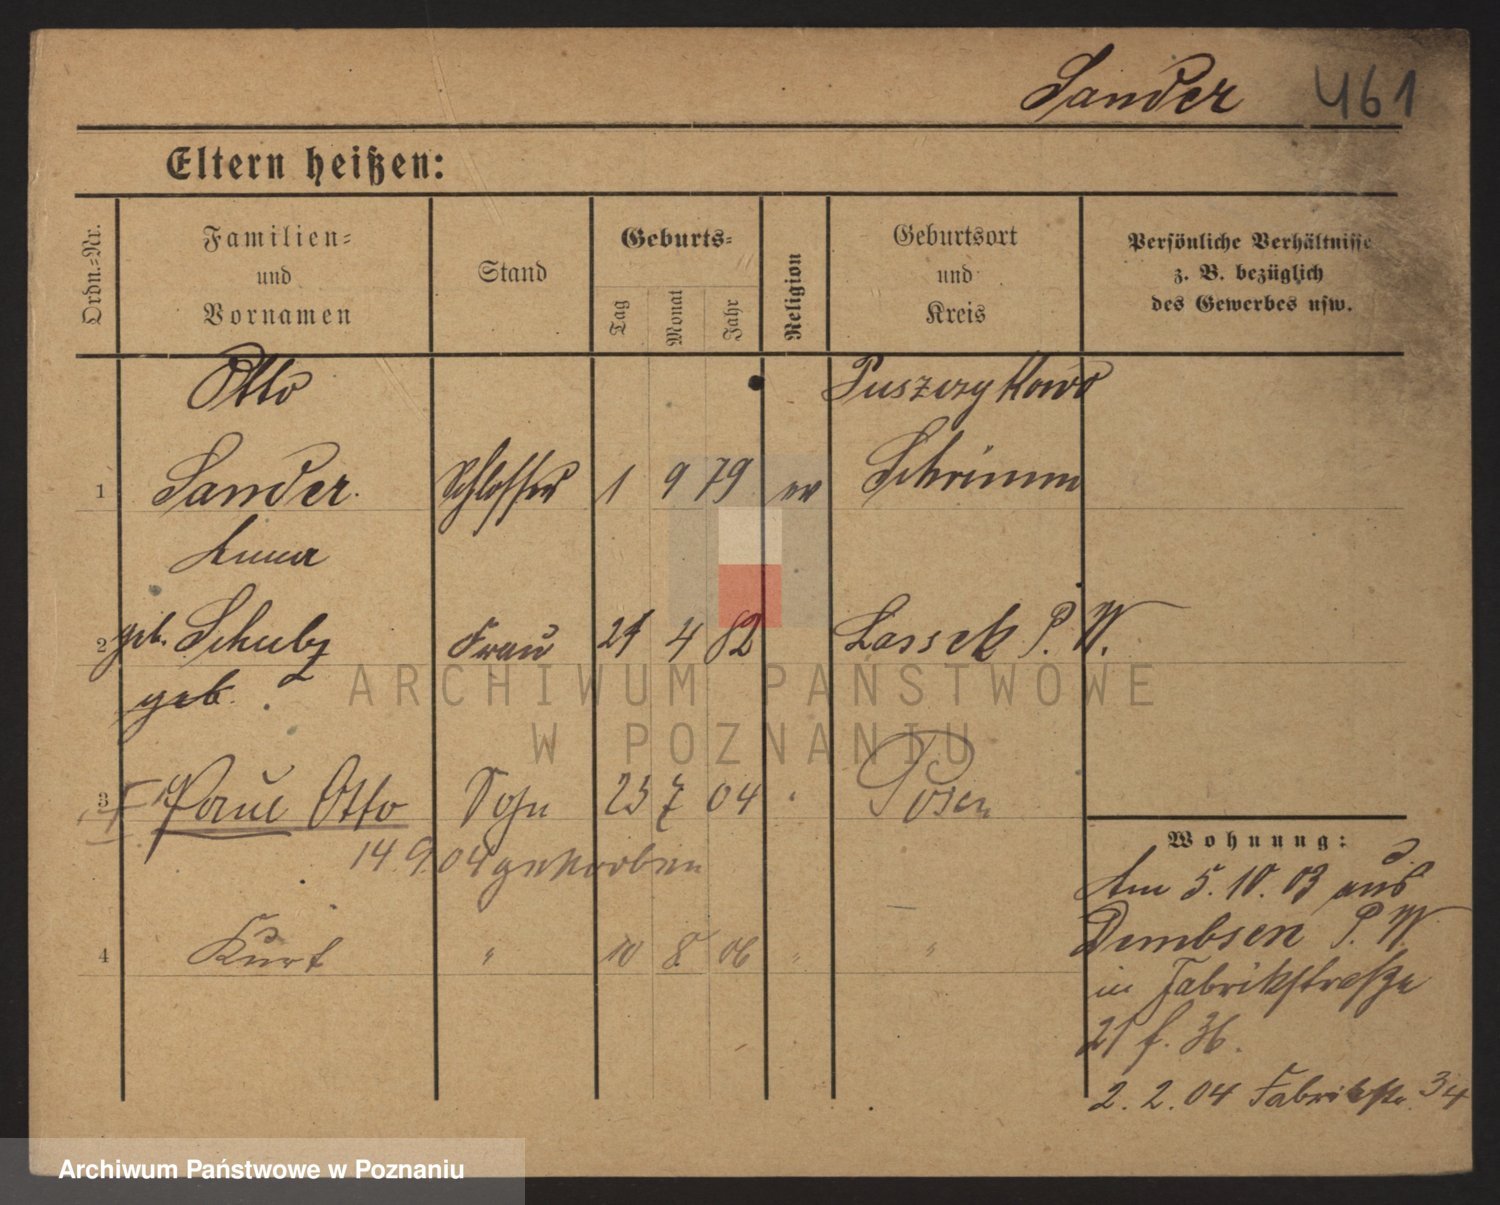 Sander 461
Eltern heißen:
Ordn.-Nr.
Familien-
und
Vornamen
Stand
Geburts-
Tag
Monat
Jahr
Religion
Geburtsort
und
Kreis
Persönliche Verhältnisse
z. B. bezüglich
des Gewerbes usw.
Otto Puszczykowo
1 Sander. Schlosser 1 9 79 ev Schrimm
Anna
2 geb. Schulz Frau 21 4 82 Lassek P. W.
geb.
3 Paul Otto Sohn 23 7 04 " Posen
14.9.04 gestorben
4 Kurt " 10 8 06 " "
Wohnung:
Am 5.10.03 aus
Dembsen P. W.
in Fabrikstraße
21 f. 36.
2.2.04 Fabrikstr. 34
ARCHIWUM PAŃSTWOWE
W POZNANIU
Archiwum Państwowe w Poznaniu